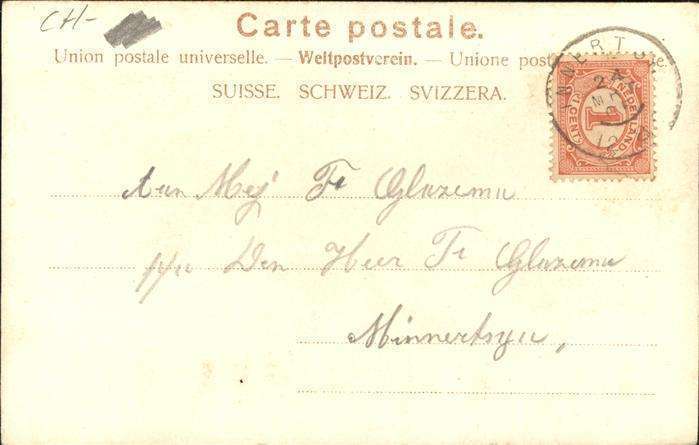 CH-
Carte postale.
Union postale universelle. — Weltpostverein. — Unione postale
SUISSE. SCHWEIZ. SVIZZERA.
NEDERLAND
1
CENT
Aan Mej Fr Glazema
p/a Den Heer Fr Glazema
Minnertsga,